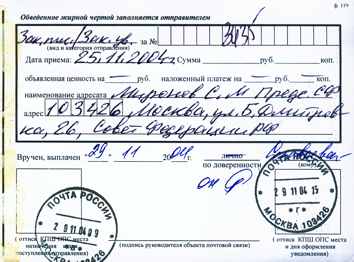 Обведенное жирной чертой заполняется отправителем
Зак.пис./Зак.ув. за № 3135
(вид и категория отправления)
Дата приема: 25.11.2004г. Сумма руб. коп.
объявленная ценность на руб. наложенный платеж на руб. коп.
наименование адресата Миронов С. М Предс. СФ
адрес 103426, Москва, ул. Б. Дмитров-
ка, 26, Совет Федерации РФ
Вручен, выплачен 29. 11 2004г. лично
по доверенности
ПОЧТА РОССИИ
29 11 04 09
МОСКВА 103426
ПОЧТА РОССИИ
29 11 04 15
г
МОСКВА 103426
( оттиск КПШ ОПС места
поступления отправления)
(подпись руководителя объекта почтовой связи)
( оттиск КПШ ОПС места
и дня оформления
уведомления)